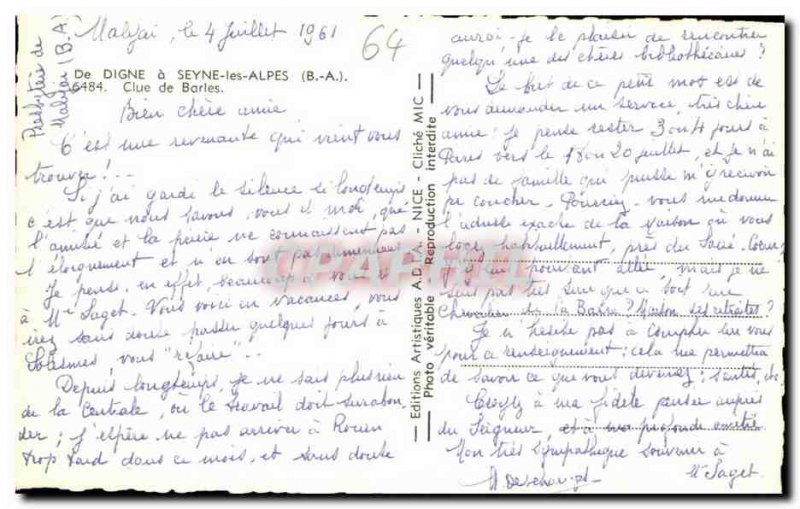 Malijai, le 4 Juillet 1961
64
Presbytère de
Malijai (B.A)
De DIGNE à SEYNE-les-ALPES (B.-A.).
6484. Clue de Barles.
Bien chère amie
C'est une revenante qui vient vous
trouver!...
Si j'ai gardé le silence si longtemps
c'est que nous savons, vous et moi, que
l'amitié et la prière ne connaissent pas
l'éloignement et n'en sont pas
Je pense, en effet, beaucoup à vous et
à Mlle Saget. Vous voici en vacances, vous
irez sans doute passer quelques jours à
vous "refaire"..
Depuis longtemps, je ne sais plus rien
de la Centrale, où le travail doit surabon-
der; j'espère ne pas arriver à Rouen
trop tard dans ce mois, et sans doute
Editions Artistiques A.D.I.A. - NICE - Cliché MIC
Photo véritable Reproduction interdite
CPAPHIL
aurai-je le plaisir de rencontrer
quelqu'une des chères bibliothécaires?
Le but de ce petit mot est de
vous demander un service, très chère
amie: je pense rester 3 ou 4 jours à
Paris vers le 18 ou 20 juillet, et je n'ai
pas de famille qui puisse m'y recevoir
pr coucher. Pourriez-vous me donner
l'adresse exacte de la maison où vous
logez habituellement, près du Sacré-Coeur
j'y suis souvent allée, mais je ne
suis pas très sûre que ce soit rue
Chevalier de la Barre? Maison des retraites?
Je n'hésite pas à compter sur vous
pour ce renseignement; cela me permettra
de savoir ce que vous devenez; santés, etc
Croyez à ma fidèle pensée auprès
du Seigneur, et à ma profonde amitié.
Mon très sympathique souvenir à
Mlle Saget.